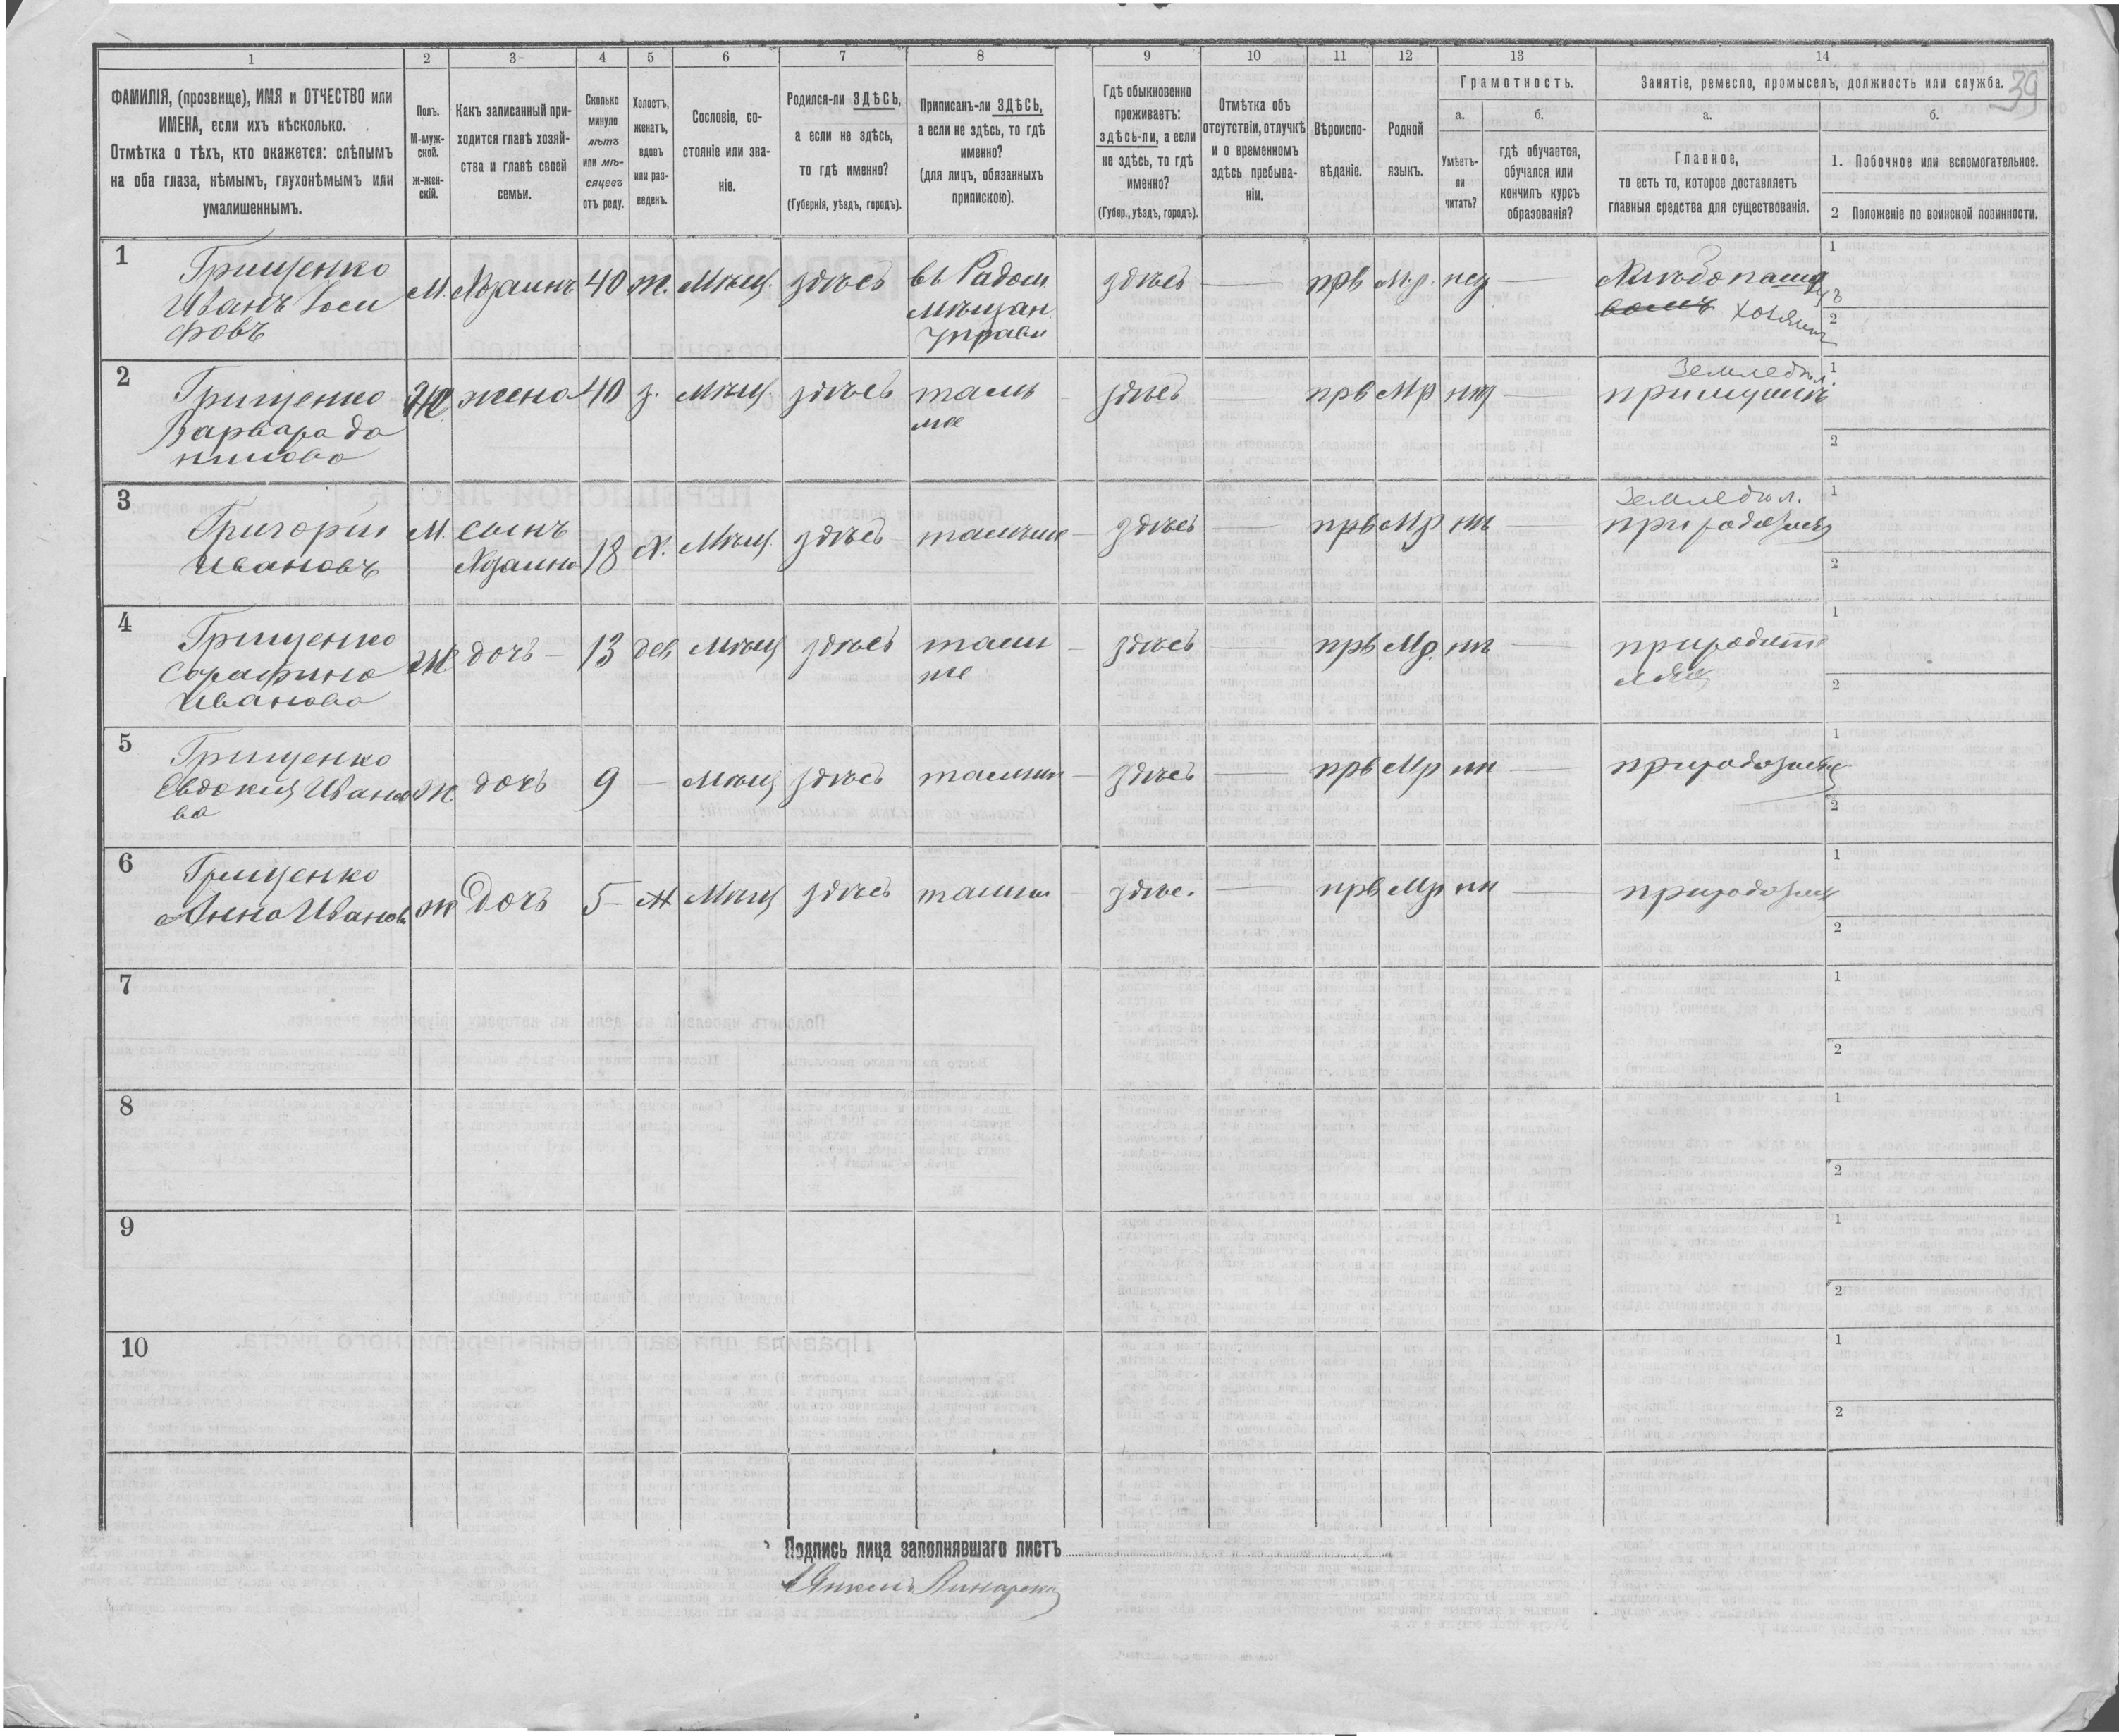 39
1 2 3 4 5 6 7 8 9 10 11 12 13 14
ФАМИЛІЯ, (прозвище), ИМЯ и ОТЧЕСТВО или
ИМЕНА, если ихъ нѣсколько.
Отмѣтка о тѣхъ, кто окажется: слѣпымъ
на оба глаза, нѣмымъ, глухонѣмымъ или
умалишеннымъ.
Полъ.
М-муж-
ской.
ж-жен-
скій.
Какъ записанный при-
ходится главѣ хозяй-
ства и главѣ своей
семьи.
Сколько
минуло
лѣтъ
или мѣ-
сяцевъ
отъ роду.
Холостъ,
женатъ,
вдовъ
или раз-
веденъ.
Сословіе, со-
стояніе или зва-
ніе.
Родился-ли ЗДѢСЬ,
а если не здѣсь,
то гдѣ именно?
(Губернія, уѣздъ, городъ).
Приписанъ-ли ЗДѢСЬ,
а если не здѣсь, то гдѣ
именно?
(для лицъ, обязанныхъ
припискою).
Гдѣ обыкновенно
проживаетъ:
здѣсь-ли, а если
не здѣсь, то гдѣ
именно?
(Губер., уѣздъ, городъ).
Отмѣтка объ
отсутствіи, отлучкѣ
и о временномъ
здѣсь пребыва-
ніи.
Вѣроиспо-
вѣданіе.
Родной
языкъ.
Грамотность.
а.
Умѣетъ-
ли
читать?
б.
гдѣ обучается,
обучался или
кончилъ курсъ
образованія?
Занятіе, ремесло, промыселъ, должность или служба.
а.
Главное,
то есть то, которое доставляетъ
главныя средства для существованія.
б.
1. Побочное или вспомогательное.
2 Положеніе по воинской повинности.
1
Грищенко
Иванъ Іоси
фовъ
М. Хозаинъ 40 ж. Мѣщ. здѣсь
въ Радом
Мѣщан.
управи
здѣсь — прв М.р. —
хозяин
1
2
2
Грищенко
Варвара да
нилова
Ж жена 40 з. Мѣщ. здѣсь
тамъ
же
здѣсь — прв Мр —
Земледѣл.
1
2
3
Григорій
Ивановъ
М. сынъ
Хозаина
18 Х. Мѣщ. здѣсь тамъже здѣсь — прв Мр нѣ —
Земледѣл.
1
2
4
Грищенко
Сорафина
Иванова
Ж. дочь — 13 дев Мѣщ здѣсь
тамъ
же
здѣсь — прв Мр. нѣ —
природите
ляхъ
1
2
5
Грищенко
Евдокия Ивано
ва
Ж. дочь 9 — Мѣщ здѣсь тамже здѣсь — прв Мр —
1
2
6
Грищенко
Анна Иванов
ж Дочь 5 — Мѣщ здѣсь тамже здѣс. — прв Мр —
1
2
7
1
2
8
1
2
9
1
2
10
1
2
Подпись лица заполнявшаго листъ